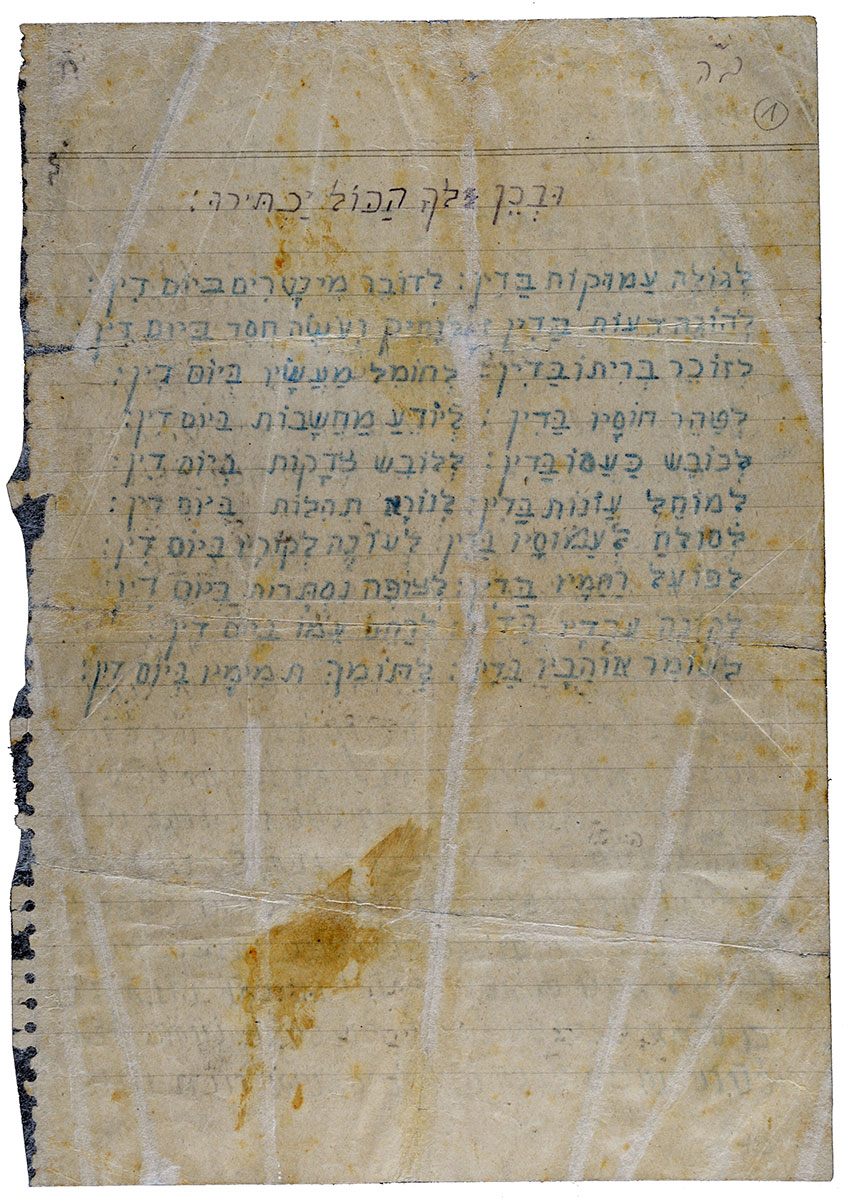 ב״ה
1
וּבְכֵן לְךָ הַכּוֹל יַכְתִּירוּ:
לְגוֹלֶה עֲמוּקוֹת בַּדִין: לְדוֹבֵר מֵישָׁרִים בְּיוֹם דִין:
לְהוֹגֶה דֵעוֹת בַּדִין: לְוָתִיק וְעֹשֶׂה חֶסֶד בְּיוֹם דִין:
לְזוֹכֵר בְּרִיתוֹ בַּדִין: לְחוֹמֵל מַעֲשָׂיו בְּיוֹם דִין:
לְטַהֵר חוֹסָיו בַּדִין: לְיוֹדֵעַ מַחֲשָׁבוֹת בְּיוֹם דִין:
לְכוֹבֵשׁ כַּעֲסוֹ בַּדִין: לְלוֹבֵשׁ צְדָקוֹת בְּיוֹם דִין:
לְמוֹחֵל עֲוֹנוֹת בַּדִין: לְנוֹרָא תְהִלּוֹת בְּיוֹם דִין:
לְסוֹלֵחַ לַעֲמוּסָיו בַּדִין: לְעוֹנֶה לְקוֹרְיו בְּיוֹם דִין:
לְפוֹעֵל רַחֲמָיו בַּדִין: לְצוֹפֶה נִסְתָּרוֹת בְּיוֹם דִין:
לְקוֹנֶה עֲבָדָיו בַּדִין: לְרַחֵם עַמּוֹ בְּיוֹם דִין:
לְשׁוֹמֵר אוֹהֲבָיו בַּדִין: לְתוֹמֵךְ תְּמִימָיו בְּיוֹם דִין: